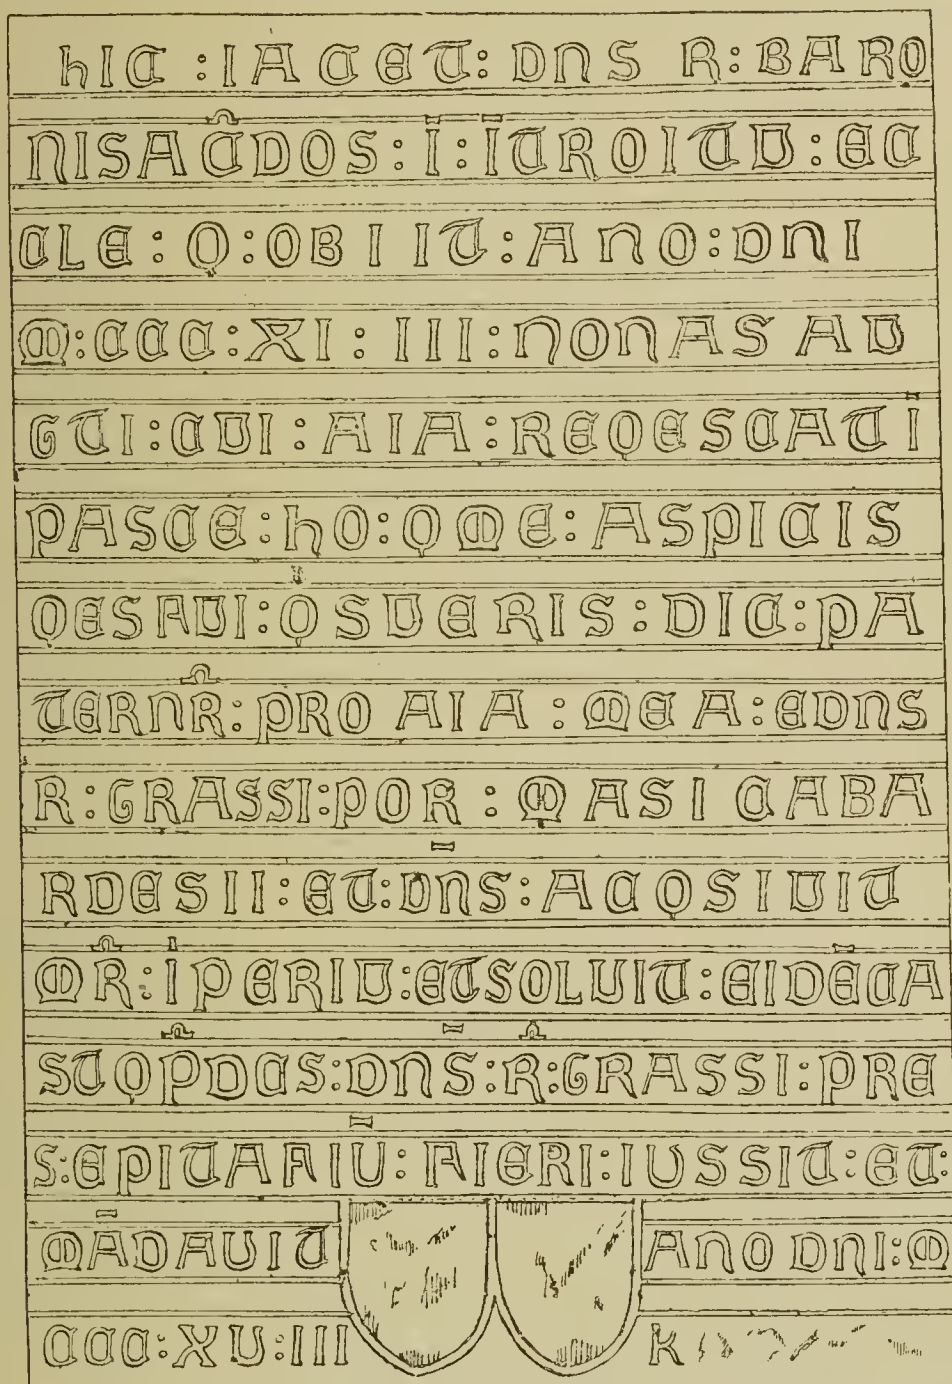 hIC : IACET : DNS R : BARO
NISACDOS : Ī : ĪTROITU : EC
CLE : Q : OBIIT : ANO : DNI
M : CCC : XI : III : NONAS AU
GTI : CUI : AIA : REQESCAT Ī
PASCE : hO : QME : ASPICIS
QESFUI : QSUERIS : DIC : PA
TERNR : PRO AIA : MEA : EDNS
R : GRASSI : POR : MASI CABA
RDESII : ET : DNS : ACQSIVIT
MR : IPERIU : ETSOLUIT : EIDĒCA
STQPDCS : DNS̄ : R : GRASSI : PRE
S : EPITAFIŪ : FIERI : IUSSIT : ET :
MĀDAUIT ANO DNI : M
CCC : XU : III K